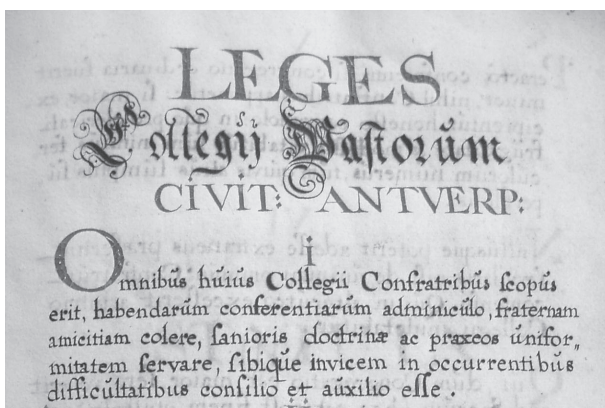 LEGES
Collegij Pastorum
CIVIT: ANTVERP:
I
Omnibus huius Collegii Confratribus scopus
erit, habendarum conferentiarum adminiculo, fraternam
amicitiam colere, sanioris doctrinæ ac praxeos unifor„
mitatem servare, sibique invicem in occurrentibus
difficultatibus consilio et auxilio esse.